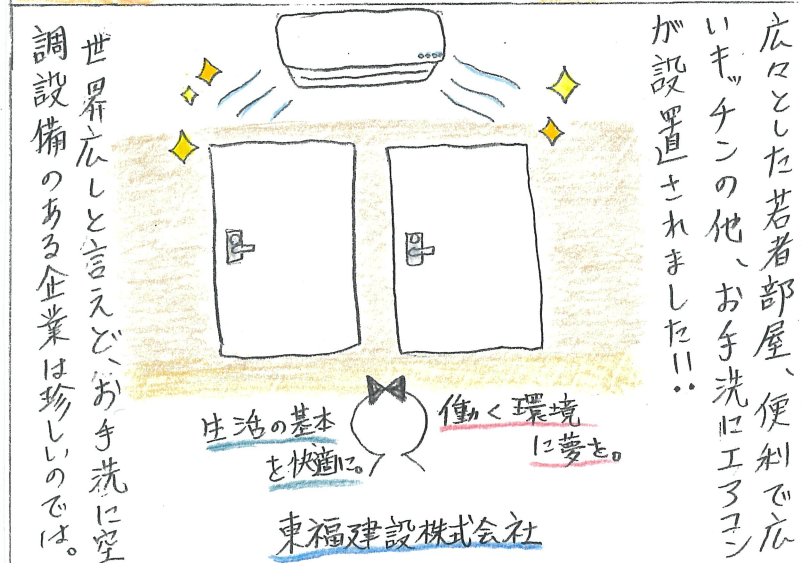 広々とした若者部屋、便利で広
いキッチンの他、お手洗にエアコン
が設置されました!!
世界広しと言えど、お手洗に空
調設備のある企業は珍しいのでは。
働く環境
に夢を。
生活の基本
を快適に。
東福建設株式会社